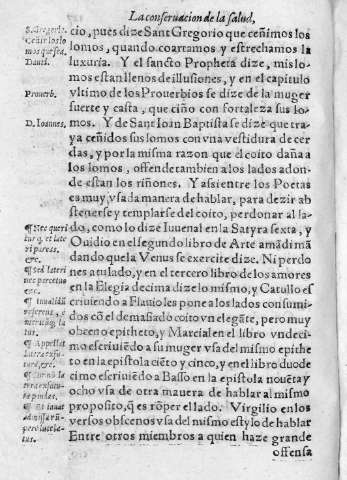 La conseruacion de la salud,
S. Gregorio.
Ceñir los lo
mos que sea.
Dauid.
Prouerb.
D. Ioannes.
cio, pues dize Sant Gregorio que ceñimos los
lomos, quando coartamos y estrechamos la
luxuria. Y el sancto Propheta dize, mis lo-
mos estan llenos de illusiones, y en el capitulo
vltimo de los Prouerbios se dize de la muger
fuerte y casta, que ciño con fortaleza sus lo-
mos. Y de Sant Ioan Baptista se dize que tra-
ya ceñidos sus lomos con vna vestidura de cer
das, y por la misma razon que el coito daña a
los lomos, offende tambien a los lados adon-
de estan los riñones. Y assi entre los Poetas
es muy vsada manera de hablar, para dezir ab
stenerse y templarse del coito, perdonar al la-
do, como lo dize Iuuenal en la Satyra sexta, y
Ouidio en el segundo libro de Arte amādi mā
dando que la Venus se exercite dize. Ni perdo
nes a tu lado, y en el tercero libro de los amores
en la Elegia decima dize lo mismo, y Catullo es
criuiendo a Flauio les pone a los lados consumi-
dos cō el demasiado coito vn elegāte, pero muy
obceno epitheto, y Marcial en el libro vndeci-
mo escriuiēdo a su muger vsa del mismo epithe
to en la epistola ciēto y cinco, y en el libro duode
cimo escriuiēdo a Basso en la epistola nouēta y
ocho vsa de otra manera de hablar al mismo
proposito, q̃ es rōper el lado. Virgilio en los
versos obscenos vsa del mismo estylo de hablar
Entre otros miembros a quien haze grande
offensa
¶ Nec queri
tur q. et late
ri parcas.
&c.
¶ Sed lateri
nec
¶
¶
¶